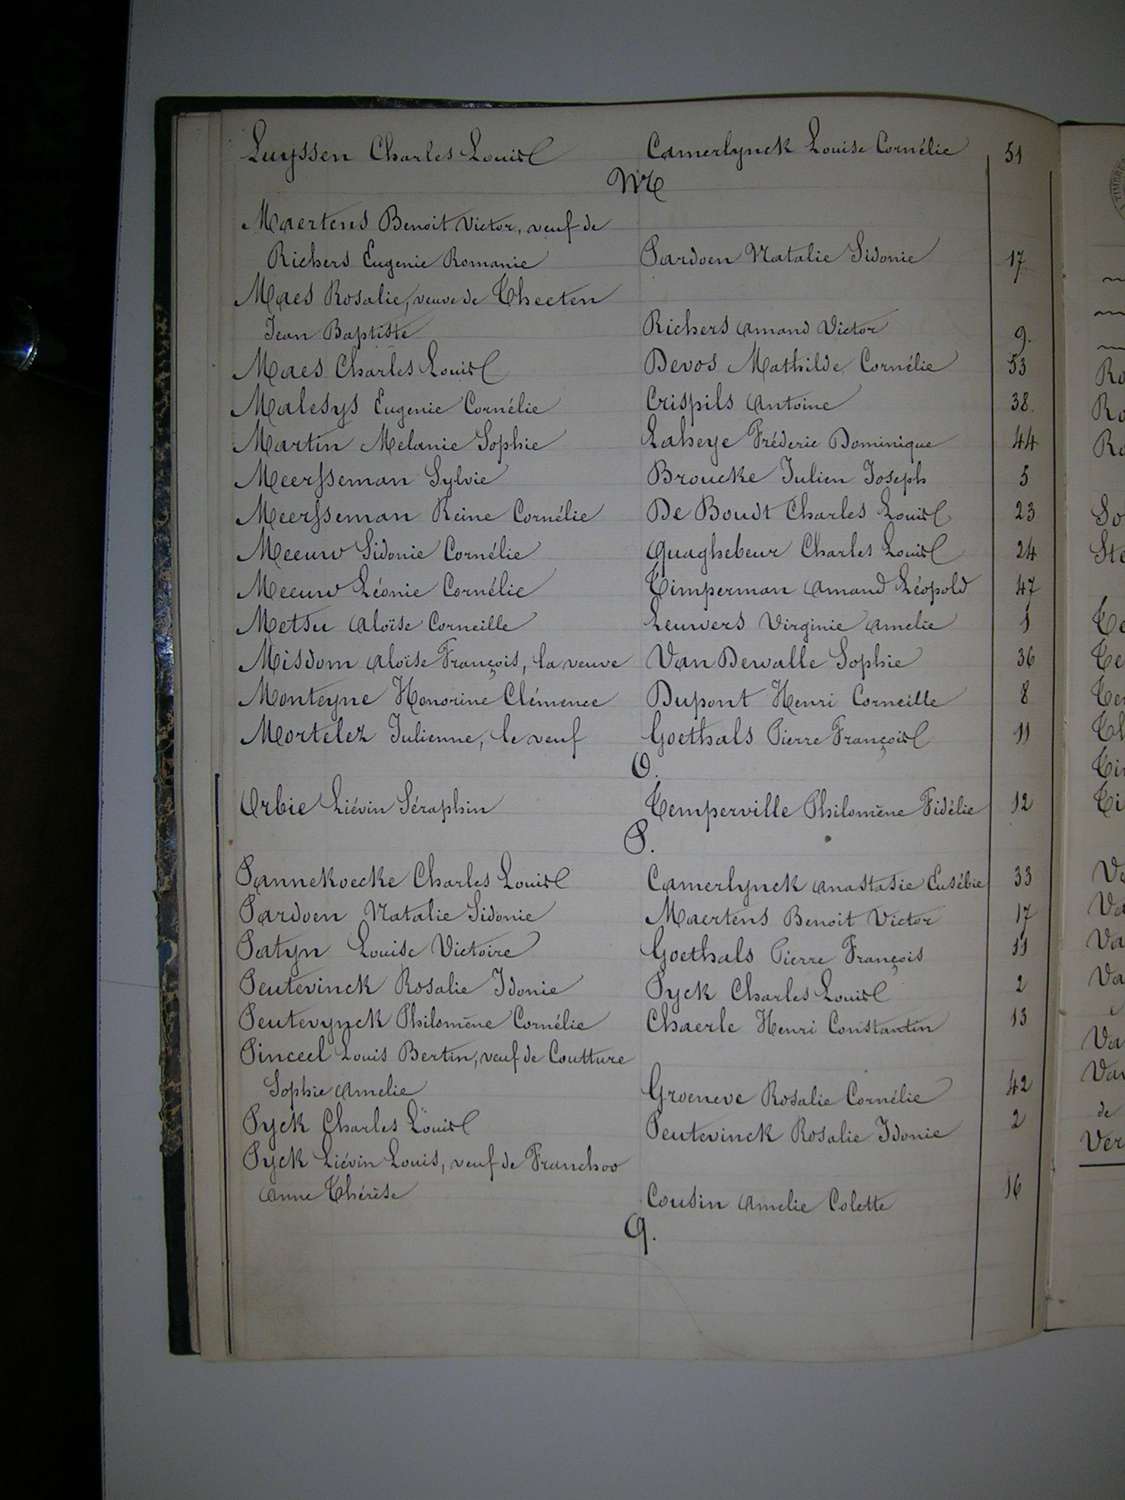 Luyssen Charles Louis Camerlynck Louise Cornélie 51
M
Maertens Benoit Victor, veuf de
Richers Eugenie Romanie Pardoen Natalie Sidonie 17
Maes Rosalie, veuve de Theeten
Jean Baptiste Richers Amand Victor 9.
Maes Charles Louis Devos Mathilde Cornélie 53
Malesys Eugenie Cornélie Crispils Antoine 38.
Martin Melanie Sophie Laheye Fréderic Dominique 44
Meersseman Sylvie Broucke Julien Joseph 5
Meersseman Reine Cornélie De Boudt Charles Louis 23
Meeuw Sidonie Cornélie Quaghebeur Charles Louis 24
Meeuw Léonie Cornélie Timperman Amand Léopold 47
Metsu Aloïse Corneille Leuwers Virginie Amelie 1
Misdom Aloïse François, la veuve Van Dewalle Sophie 36
Monteyne Honorine Clémence Dupont Henri Corneille 8
Mortelez Julienne, le veuf Goethals Pierre François 11
O.
Orbie Liévin Séraphin Temperville Philomène Fidélie 12
P.
Pannekoecke Charles Louis Camerlynck Anastasie Eusébie 33
Pardoen Natalie Sidonie Maertens Benoit Victor 17
Patyn Louise Victoire Goethals Pierre François 11
Peutevinck Rosalie Idonie Pyck Charles Louis 2
Peutevynck Philomène Cornélie Chaerle Henri Constantin 13
Pinceel Louis Bertin, veuf de Coutture
Sophie Amelie Groeneve Rosalie Cornélie 42
Pyck Charles Louis Peutevinck Rosalie Idonie 2
Pyck Liévin Louis, veuf de Franchoo
Anne Thérèse Cousin Amelie Colette 16
Q.